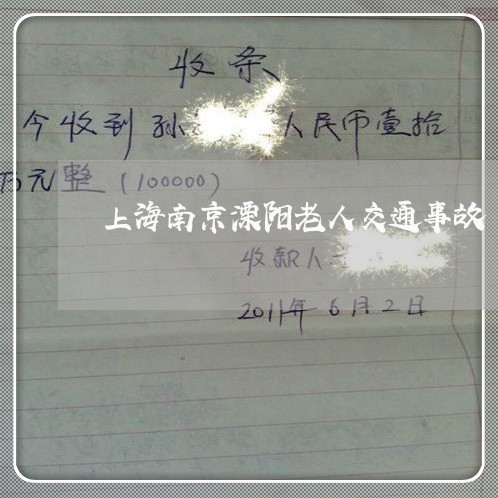 收条
今收到孙 人民币壹拾
万元整(100000)
上海南京溧阳老人交通事故
收款人
2011年6月2日